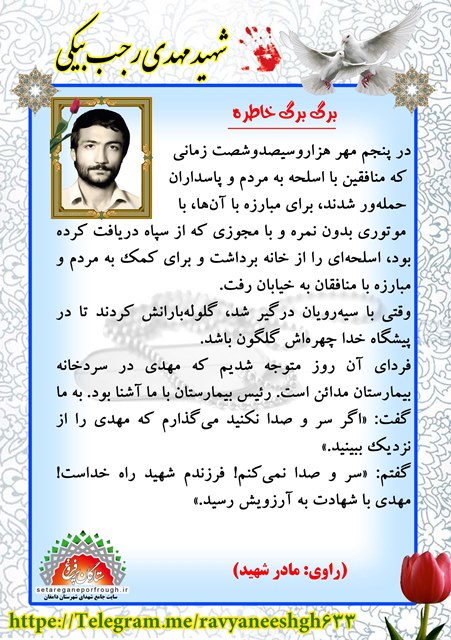 شهید مهدی رجب بیکی
برگ برگ خاطره
در پنجم مهر هزاروسیصدوشصت زمانی
که منافقین با اسلحه به مردم و پاسداران
حمله‌ور شدند، برای مبارزه با آن‌ها، با
موتوری بدون نمره و با مجوزی که از سپاه دریافت کرده
بود، اسلحه‌ای را از خانه برداشت و برای کمک به مردم و
مبارزه با منافقان به خیابان رفت.
وقتی با سیه‌رویان درگیر شد، گلوله‌بارانش کردند تا در
پیشگاه خدا چهره‌اش گلگون باشد.
فردای آن روز متوجه شدیم که مهدی در سردخانه
بیمارستان مدائن است. رئیس بیمارستان با ما آشنا بود. به ما
گفت: «اگر سر و صدا نکنید می‌گذارم که مهدی را از
نزدیک ببینید.»
گفتم: «سر و صدا نمی‌کنم! فرزندم شهید راه خداست!
مهدی با شهادت به آرزویش رسید.»
(راوی: مادر شهید)
ستارگان پرفروغ
setareganeporfrough.ir
سایت جامع شهدای شهرستان دامغان
https://Telegram.me/ravyaneeshgh633